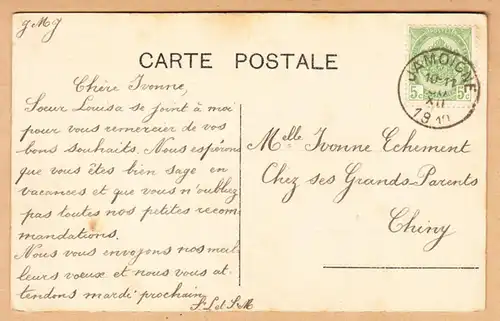 J M J
CARTE POSTALE
Chère Yvonne,
Sœur Louisa se joint à moi
pour vous remercier de vos
bons souhaits. Nous espérons
que vous êtes bien sage en
vacances et que vous n'oubliez
pas toutes nos petites recom
mandations.
Nous vous envoyons nos meil
leurs vœux et nous vous at-
tendons mardi prochain
JAMOIGNE
10-11
XII
1910
5c 5c
Melle Yvonne Echement
Chez ses Grands-Parents
Chiny